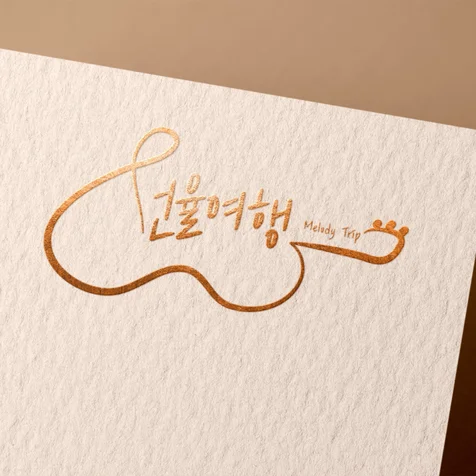 선율여행 Melody Trip